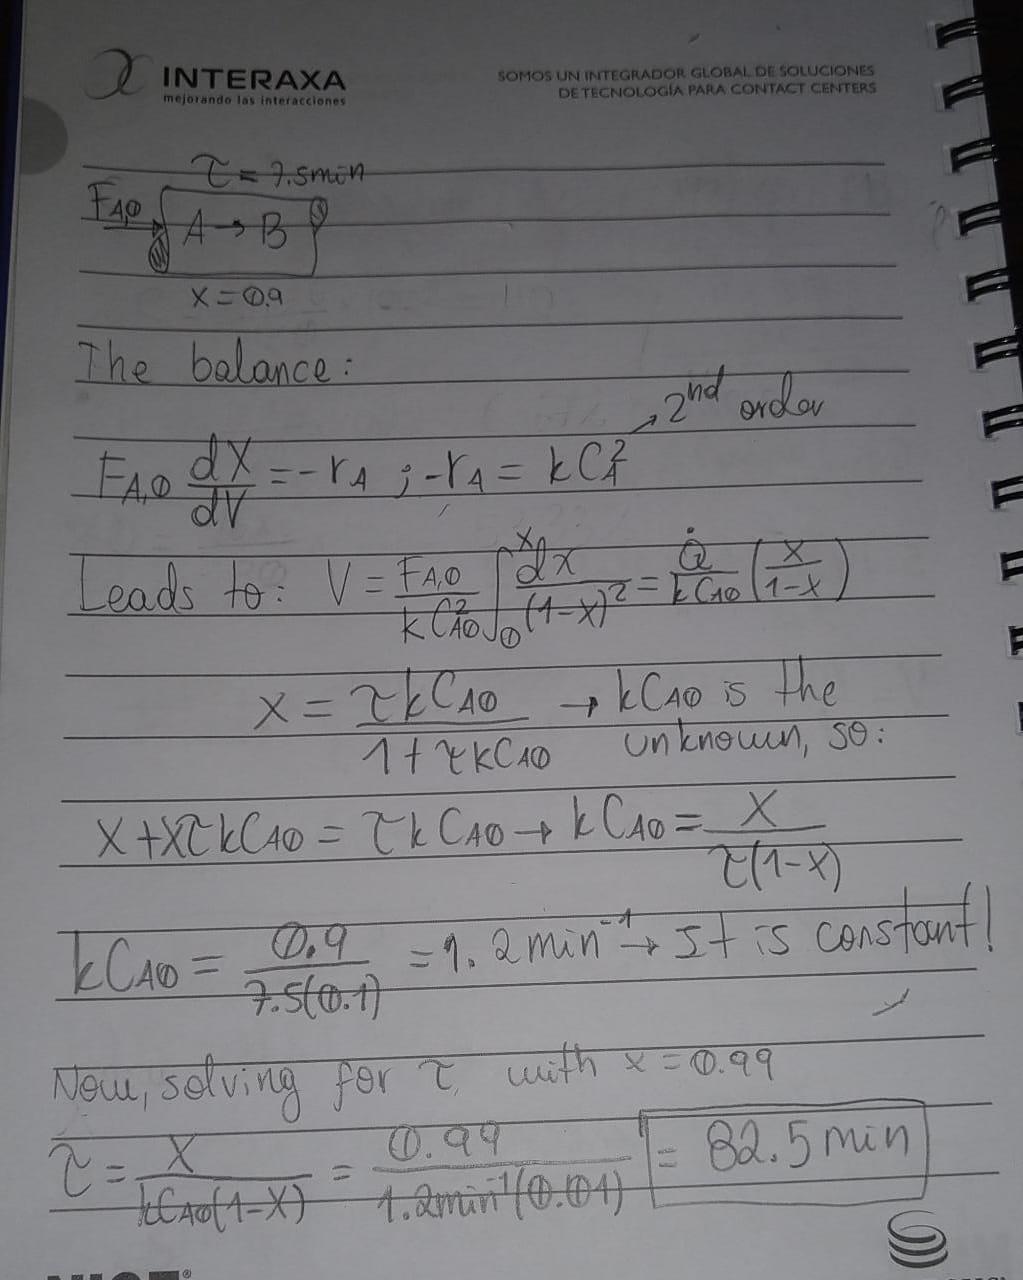 INTERAXA
mejorando las interacciones
SOMOS UN INTEGRADOR GLOBAL DE SOLUCIONES
DE TECNOLOGÍA PARA CONTACT CENTERS
τ = 7.5min
F_A,0 A → B
x = 0.9
The balance:
→ 2nd order
F_A,0 dX/dV = -r_A ; -r_A = kC_A^2
Leads to: V = F_A,0/(kC_A0^2) ∫_0^x dx/(1-x)^2 = Q̇/(kC_A0) (x/(1-x))
x = τkC_A0/(1+τkC_A0) → kC_A0 is the
unknown, so:
X+XτkC_A0 = τkC_A0 → kC_A0 = X/(τ(1-X))
kC_A0 = 0.9/(7.5(0.1)) = 1.2min^-1 → It is constant!
Now, solving for τ, with x = 0.99
τ = X/(kC_A0(1-X)) = 0.99/(1.2min^-1(0.01)) = 82.5 min